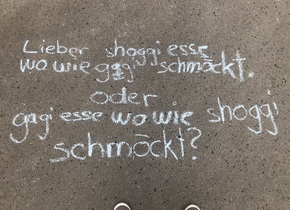 Lieber shoggi esse
wo wie gagi schmöckt.
oder
gagi esse wo wie shoggi
schmöckt?